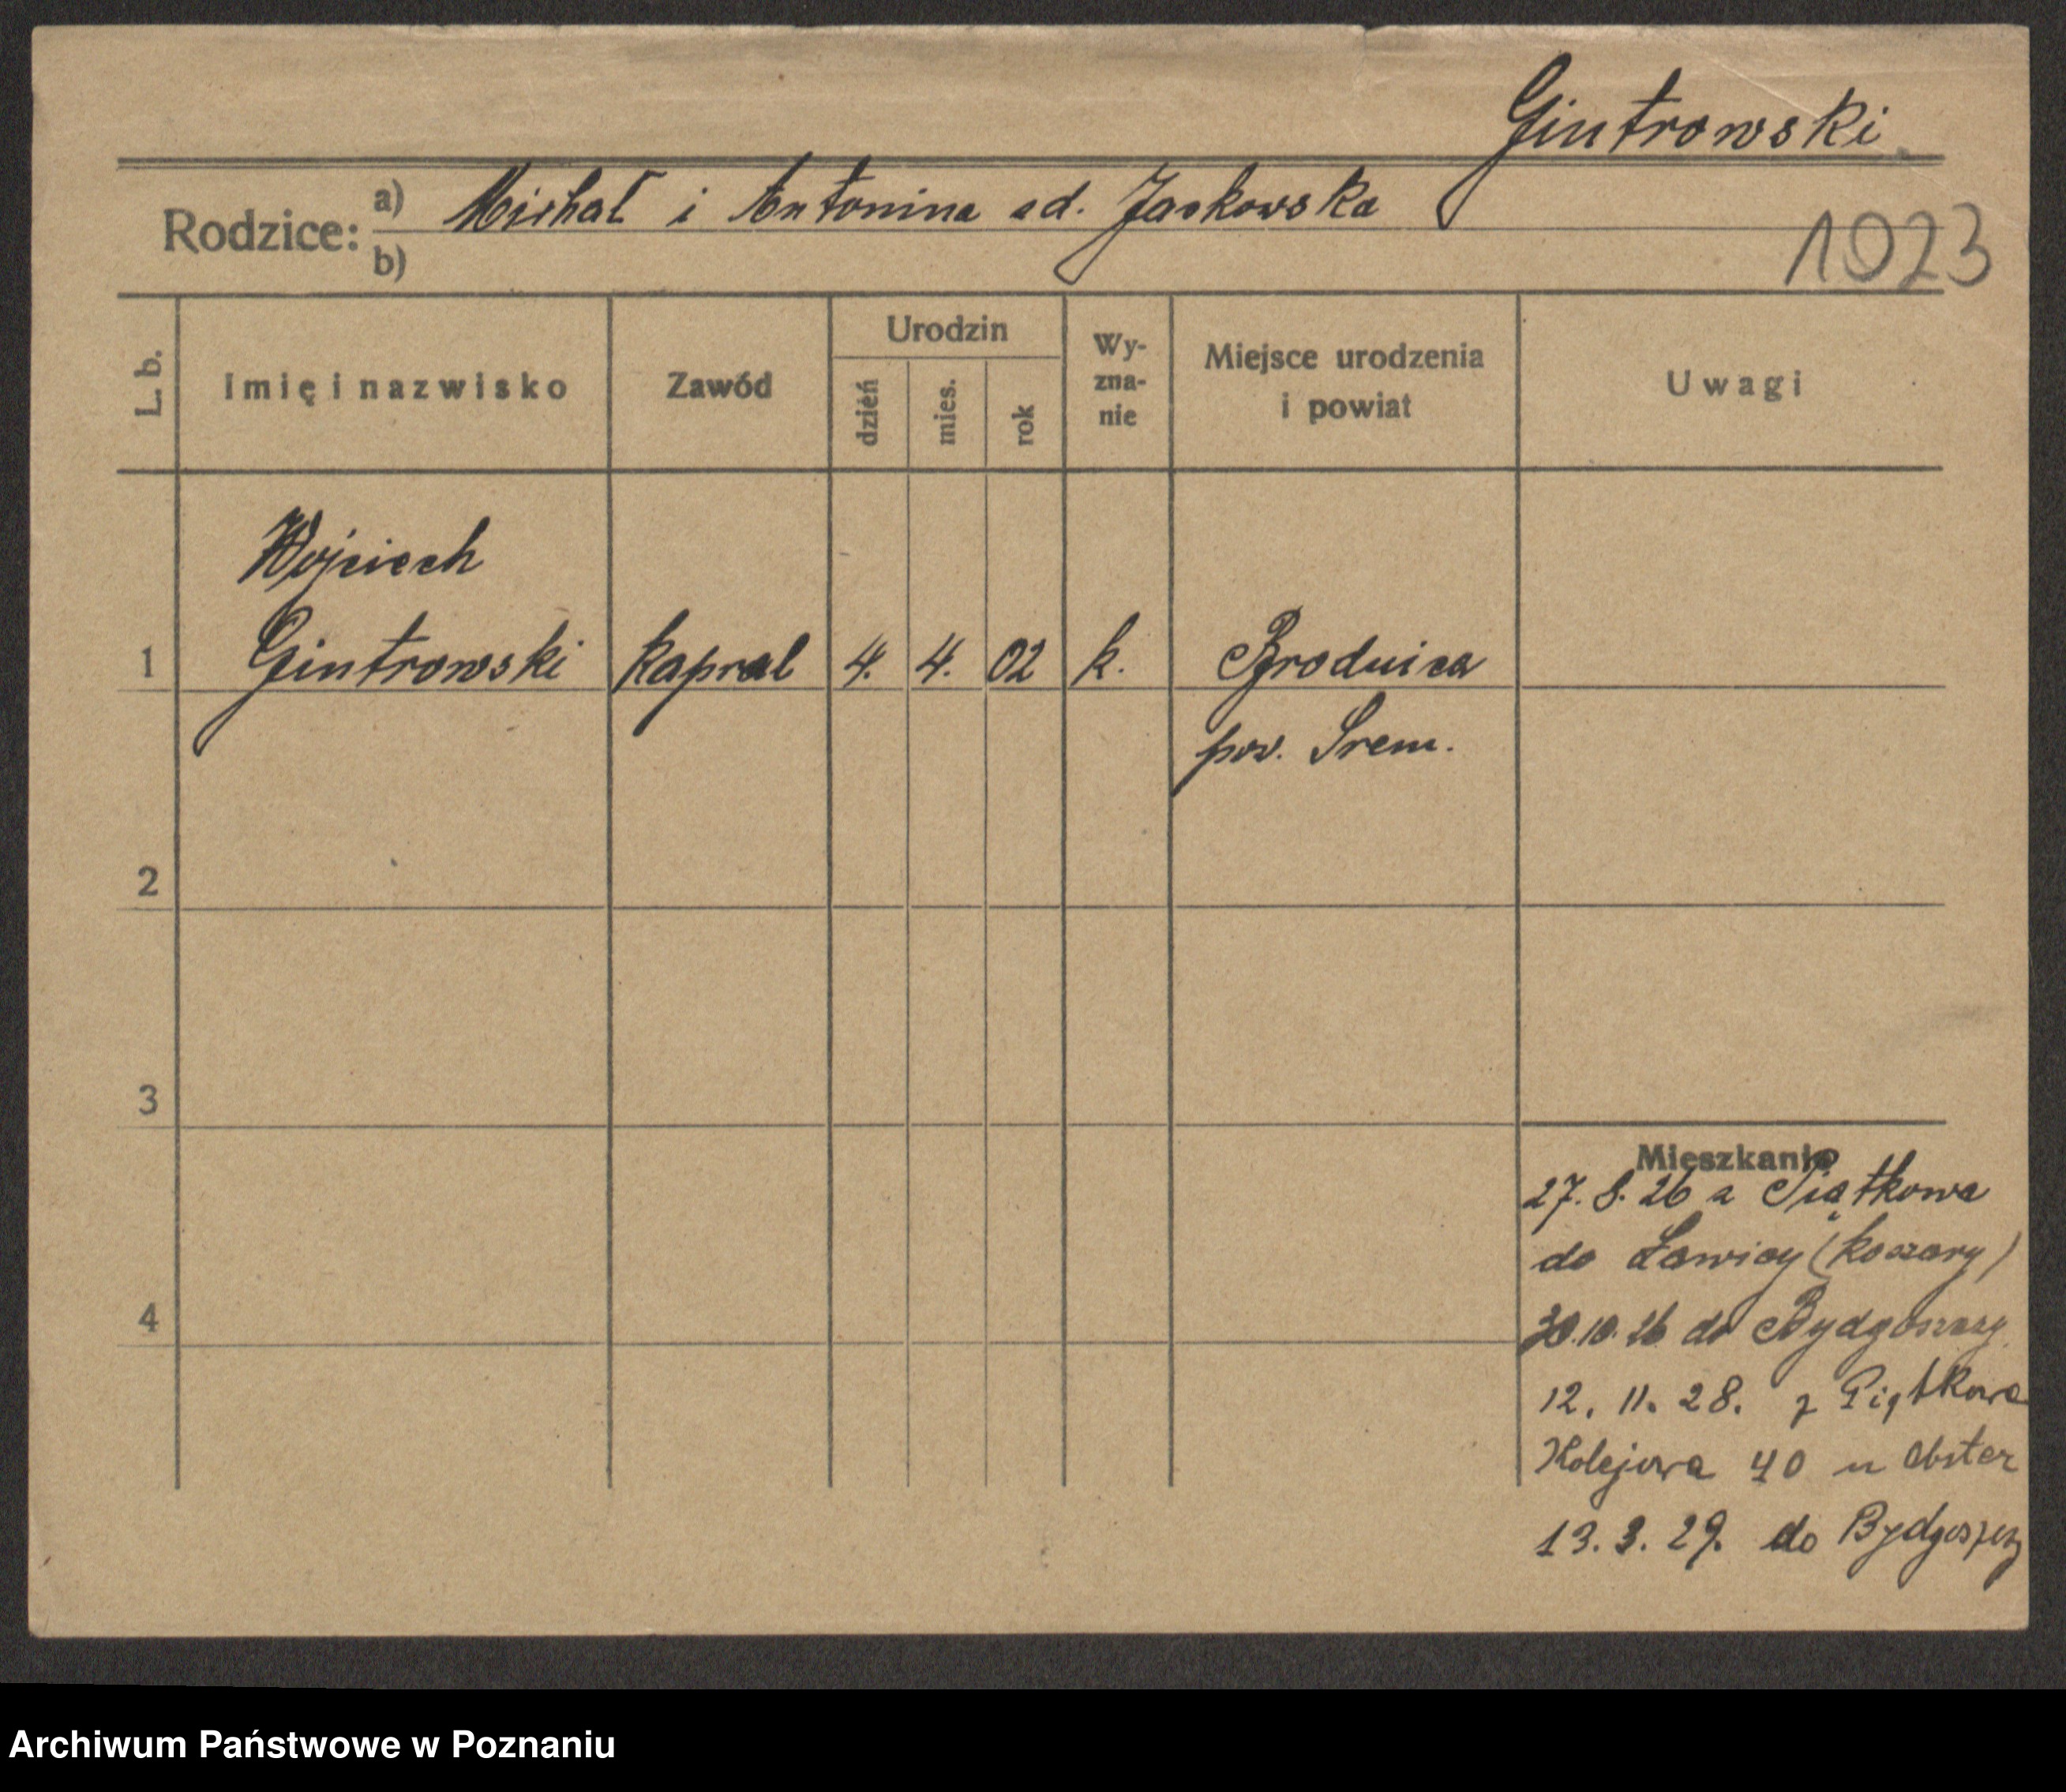 Gintrowski
Rodzice: a) Michał i Antonina ad. Jaskowska
b)
1023
L. b. Imię i nazwisko Zawód Urodzin dzień mies. rok Wy-zna-nie Miejsce urodzenia i powiat Uwagi
Wojciech
1 Gintrowski kapral 4. 4. 02 k. Brodnica
pow. Śrem.
2
3
Mieszkanie
27. 8. 26 z Piątkowa
do Ławicy (koszary)
4
30.10.26 do Bydgoszczy
12. 11. 28. z Piątkowa
Kolejowa 40 u
13. 3. 29. do Bydgoszczy
Archiwum Państwowe w Poznaniu